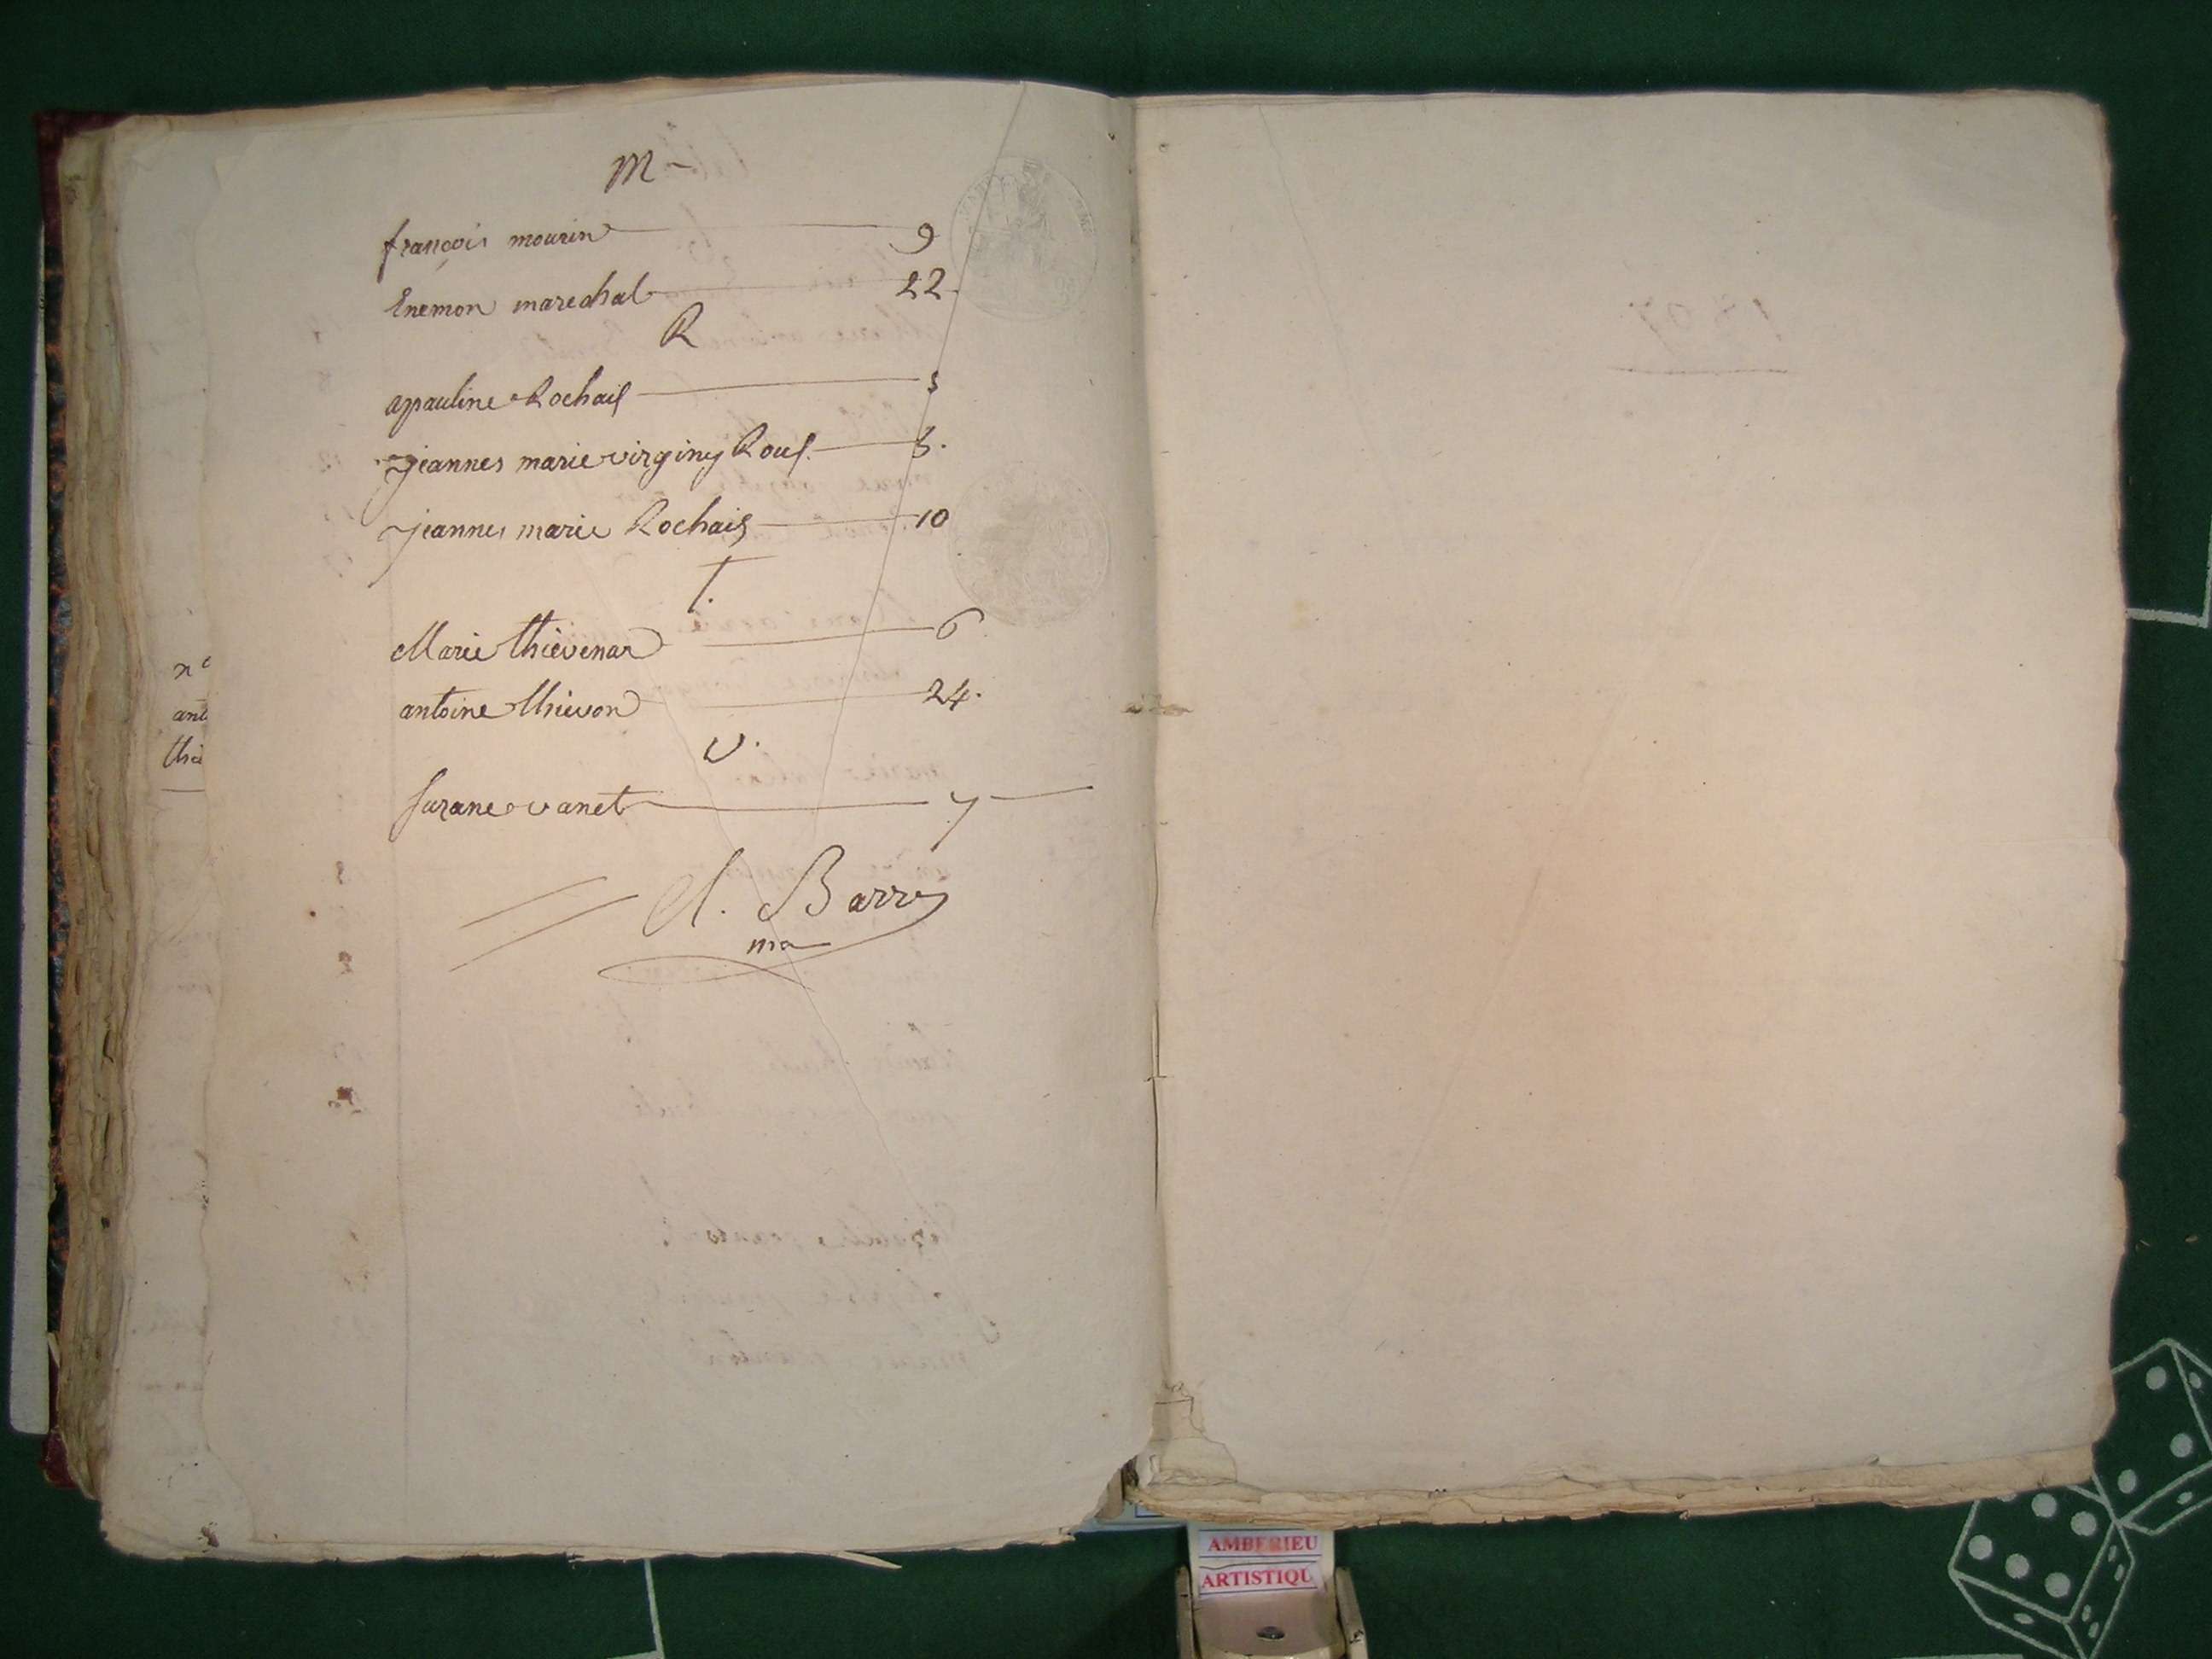 M
françois mourin 9
Enemon marechal 22
R
apauline Rochais
jeannes marie virginy 3.
jeannes marie Rochais 10
T.
Marie thievenar 6
antoine thievon 24.
V.
suzane vanet 7
Barre
ma
n°
ant
thie
1807
AMBERIEU
ARTISTIQU